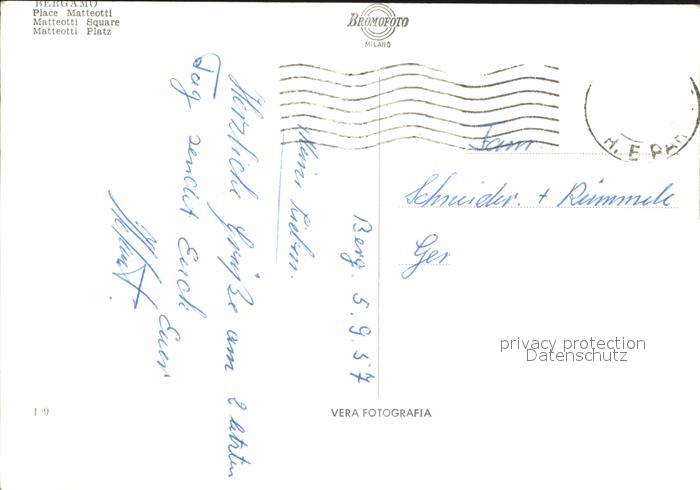 BERGAMO
Place Matteotti
Matteotti Square
Matteotti Platz
BROMOFOTO
MILANO
Berg. 5.9.57
Meine Lieben.
Herzliche Grüße am 2 letzten
Tag sendet Euch Euer
Fam.
Schneider. + Rümmele
Ger
privacy protection
Datenschutz
VERA FOTOGRAFIA